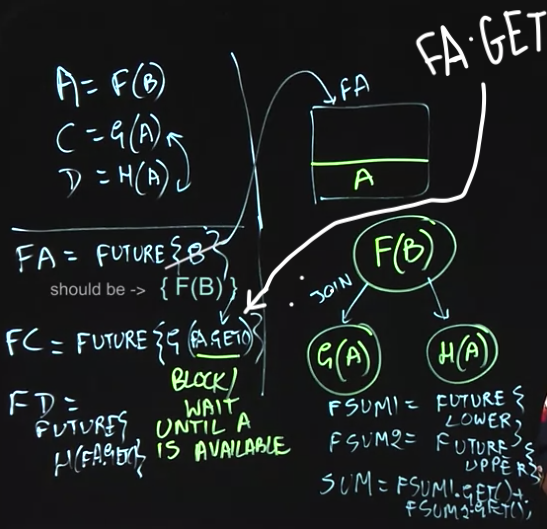 FA.GET
A = F(B)
C = G(A)
D = H(A)
FA
A
FA = FUTURE{B}
should be -> { F(B) }
F(B)
JOIN
FC = FUTURE{G(FA.GET()}
G(A)
H(A)
BLOCK/
WAIT
UNTIL A
IS AVAILABLE
FD =
FUTURE{
H(FA.GET()}
FSUM1 = FUTURE {
LOWER}
FSUM2 = FUTURE {
UPPER}
SUM = FSUM1.GET()+
FSUM2.GET();